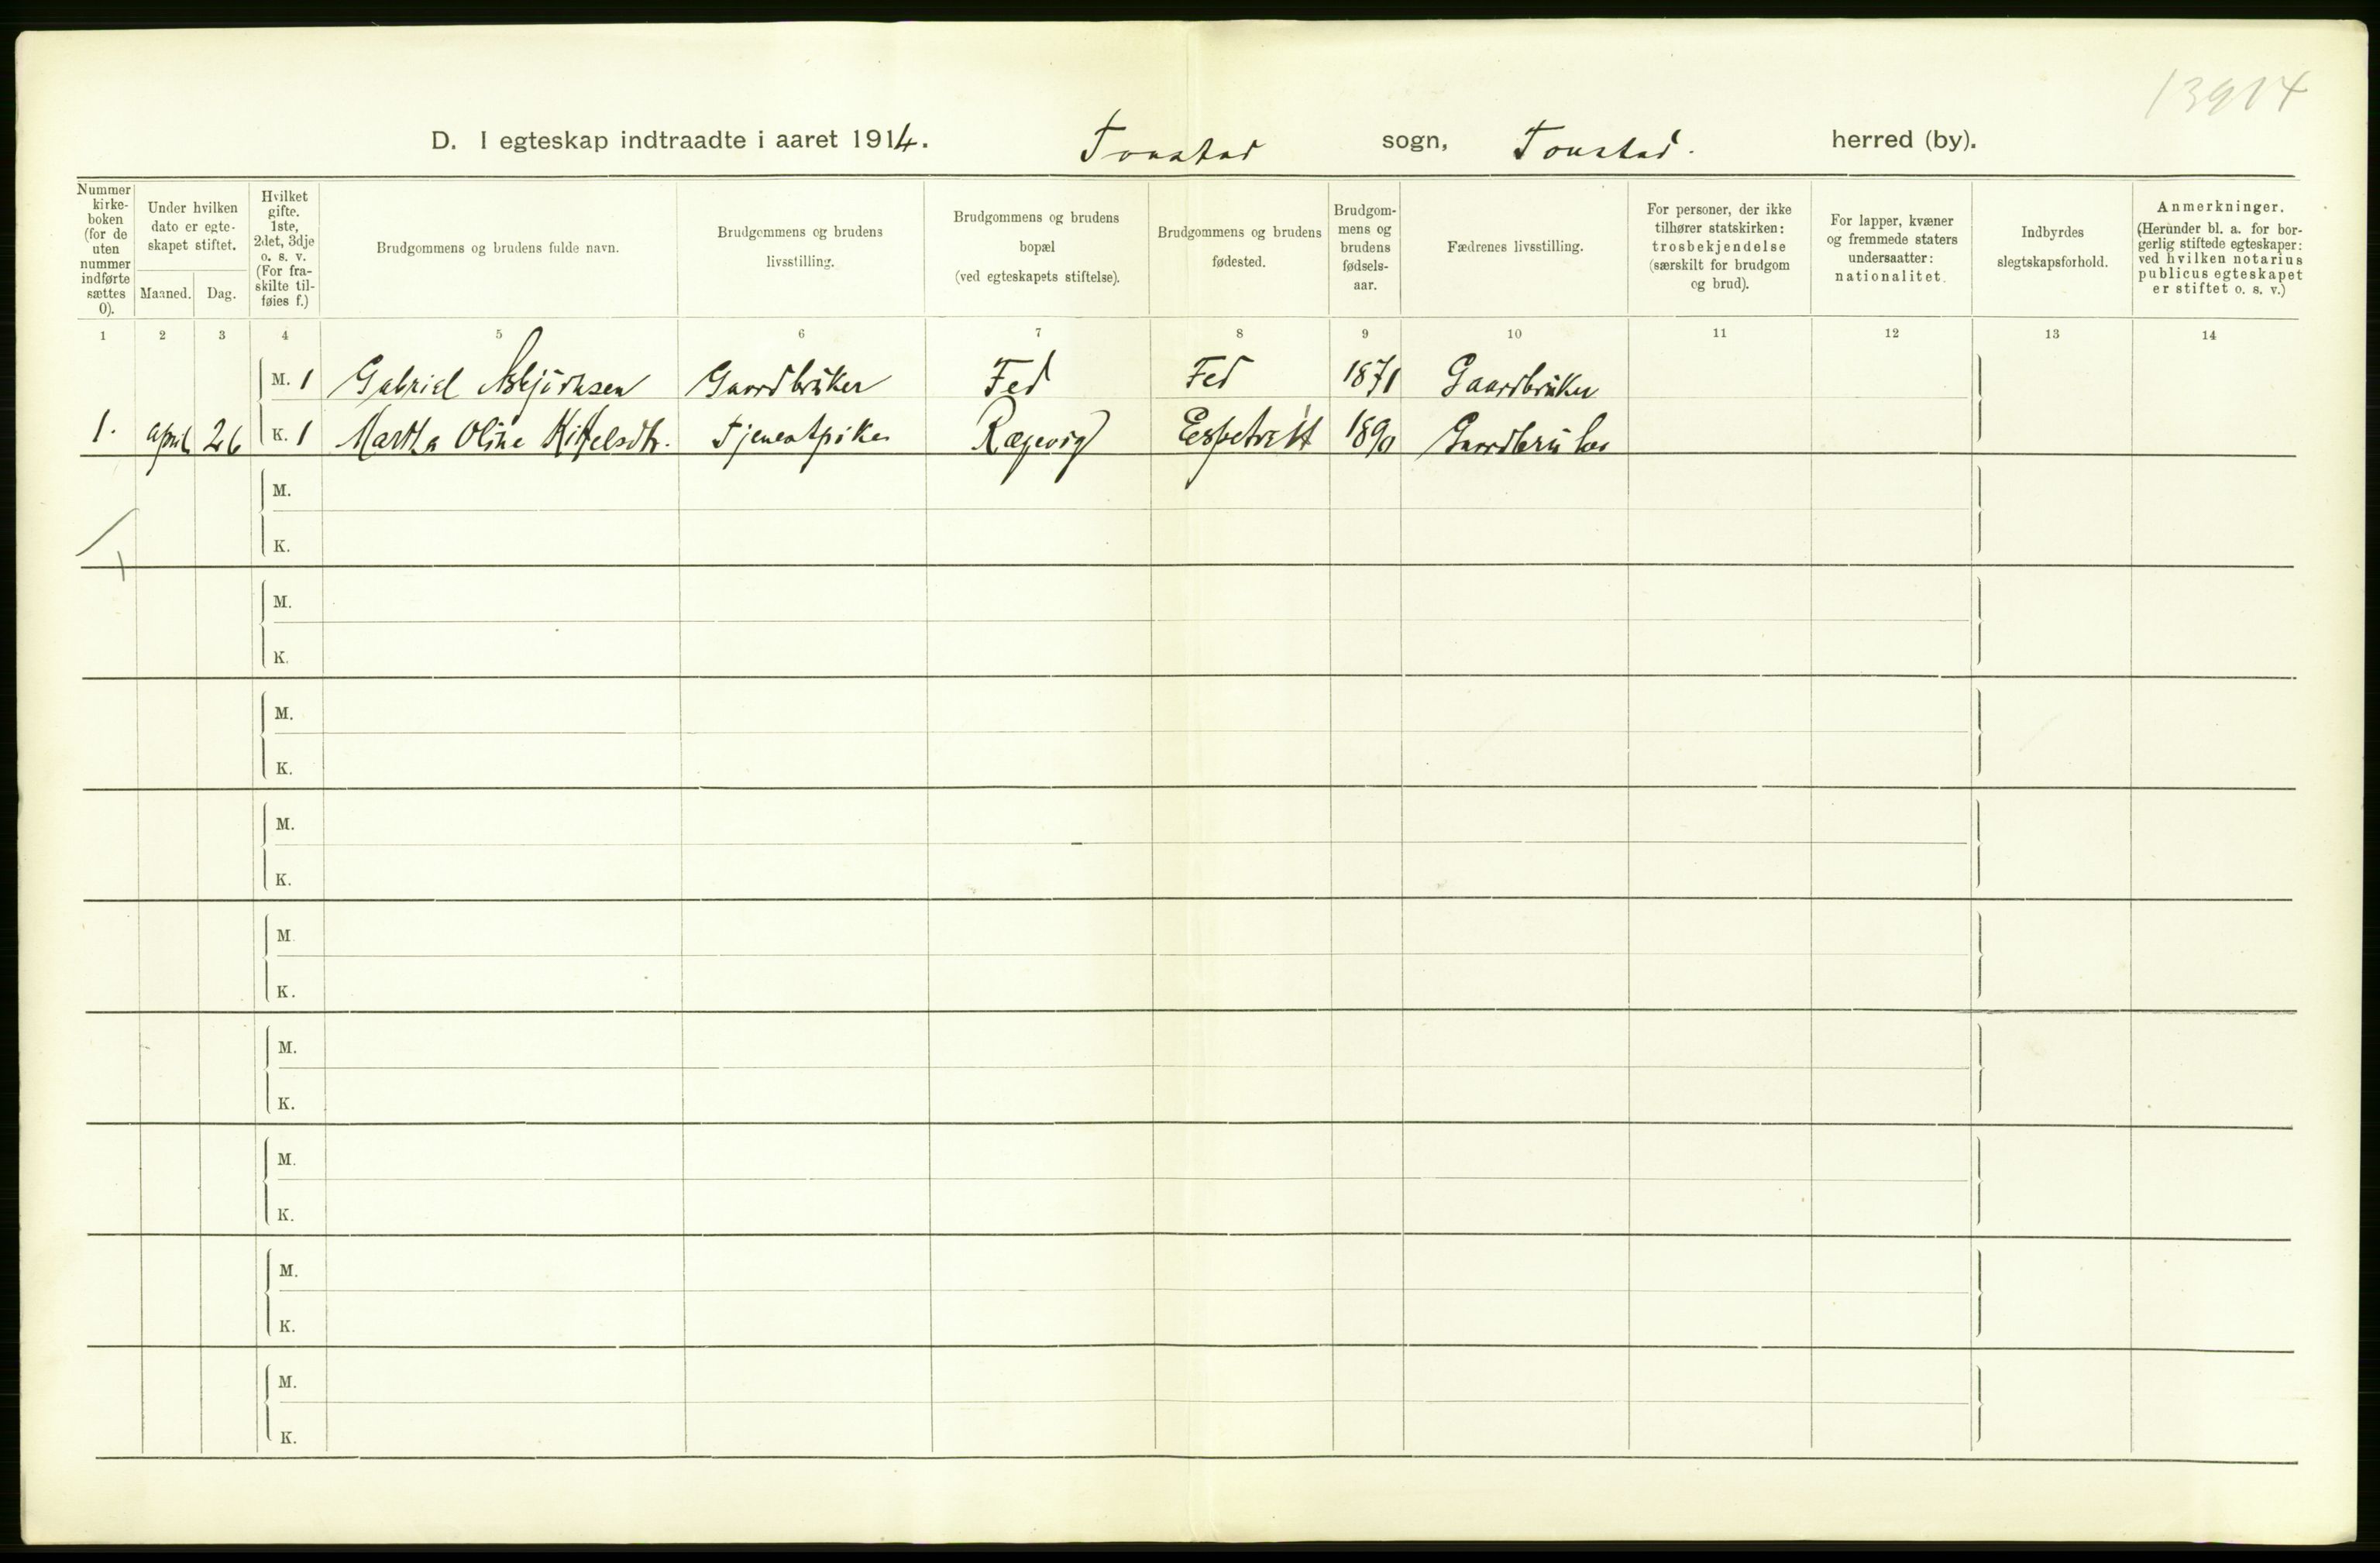 13914
D. I egteskap indtraadte i aaret 1914. Tonstad sogn, Tonstad. herred (by).
Nummer kirke-boken (for de uten nummer indførte sættes 0).
Under hvilken dato er egte-skapet stiftet.
Maaned. Dag.
Hvilket gifte. 1ste, 2det, 3dje o. s. v. (For fra-skilte til-føies f.)
Brudgommens og brudens fulde navn.
Brudgommens og brudens livsstilling.
Brudgommens og brudens bopæl (ved egteskapets stiftelse).
Brudgommens og brudens fødested.
Brudgom-mens og brudens fødsels-aar.
Fædrenes livsstilling.
For personer, der ikke tilhører statskirken: trosbekjendelse (særskilt for brudgom og brud).
For lapper, kvæner og fremmede staters undersaatter: nationalitet.
Indbyrdes slegtskapsforhold.
Anmerkninger. (Herunder bl. a. for bor-gerlig stiftede egteskaper: ved hvilken notarius publicus egteskapet er stiftet o. s. v.)
1 2 3 4 5 6 7 8 9 10 11 12 13 14
M. 1 Gabriel Asbjörnsen Gaardbruker Fed Fed 1871 Gaardbruker
1. april 26 K. 1 Martha Oline Kittelsdtr. Tjenestpike Rægevig Espetveit 1890 Gaardbruker
M.
K.
M.
K.
M.
K.
M.
K.
M
K.
M.
K.
M.
K.
M.
K.
M.
K.